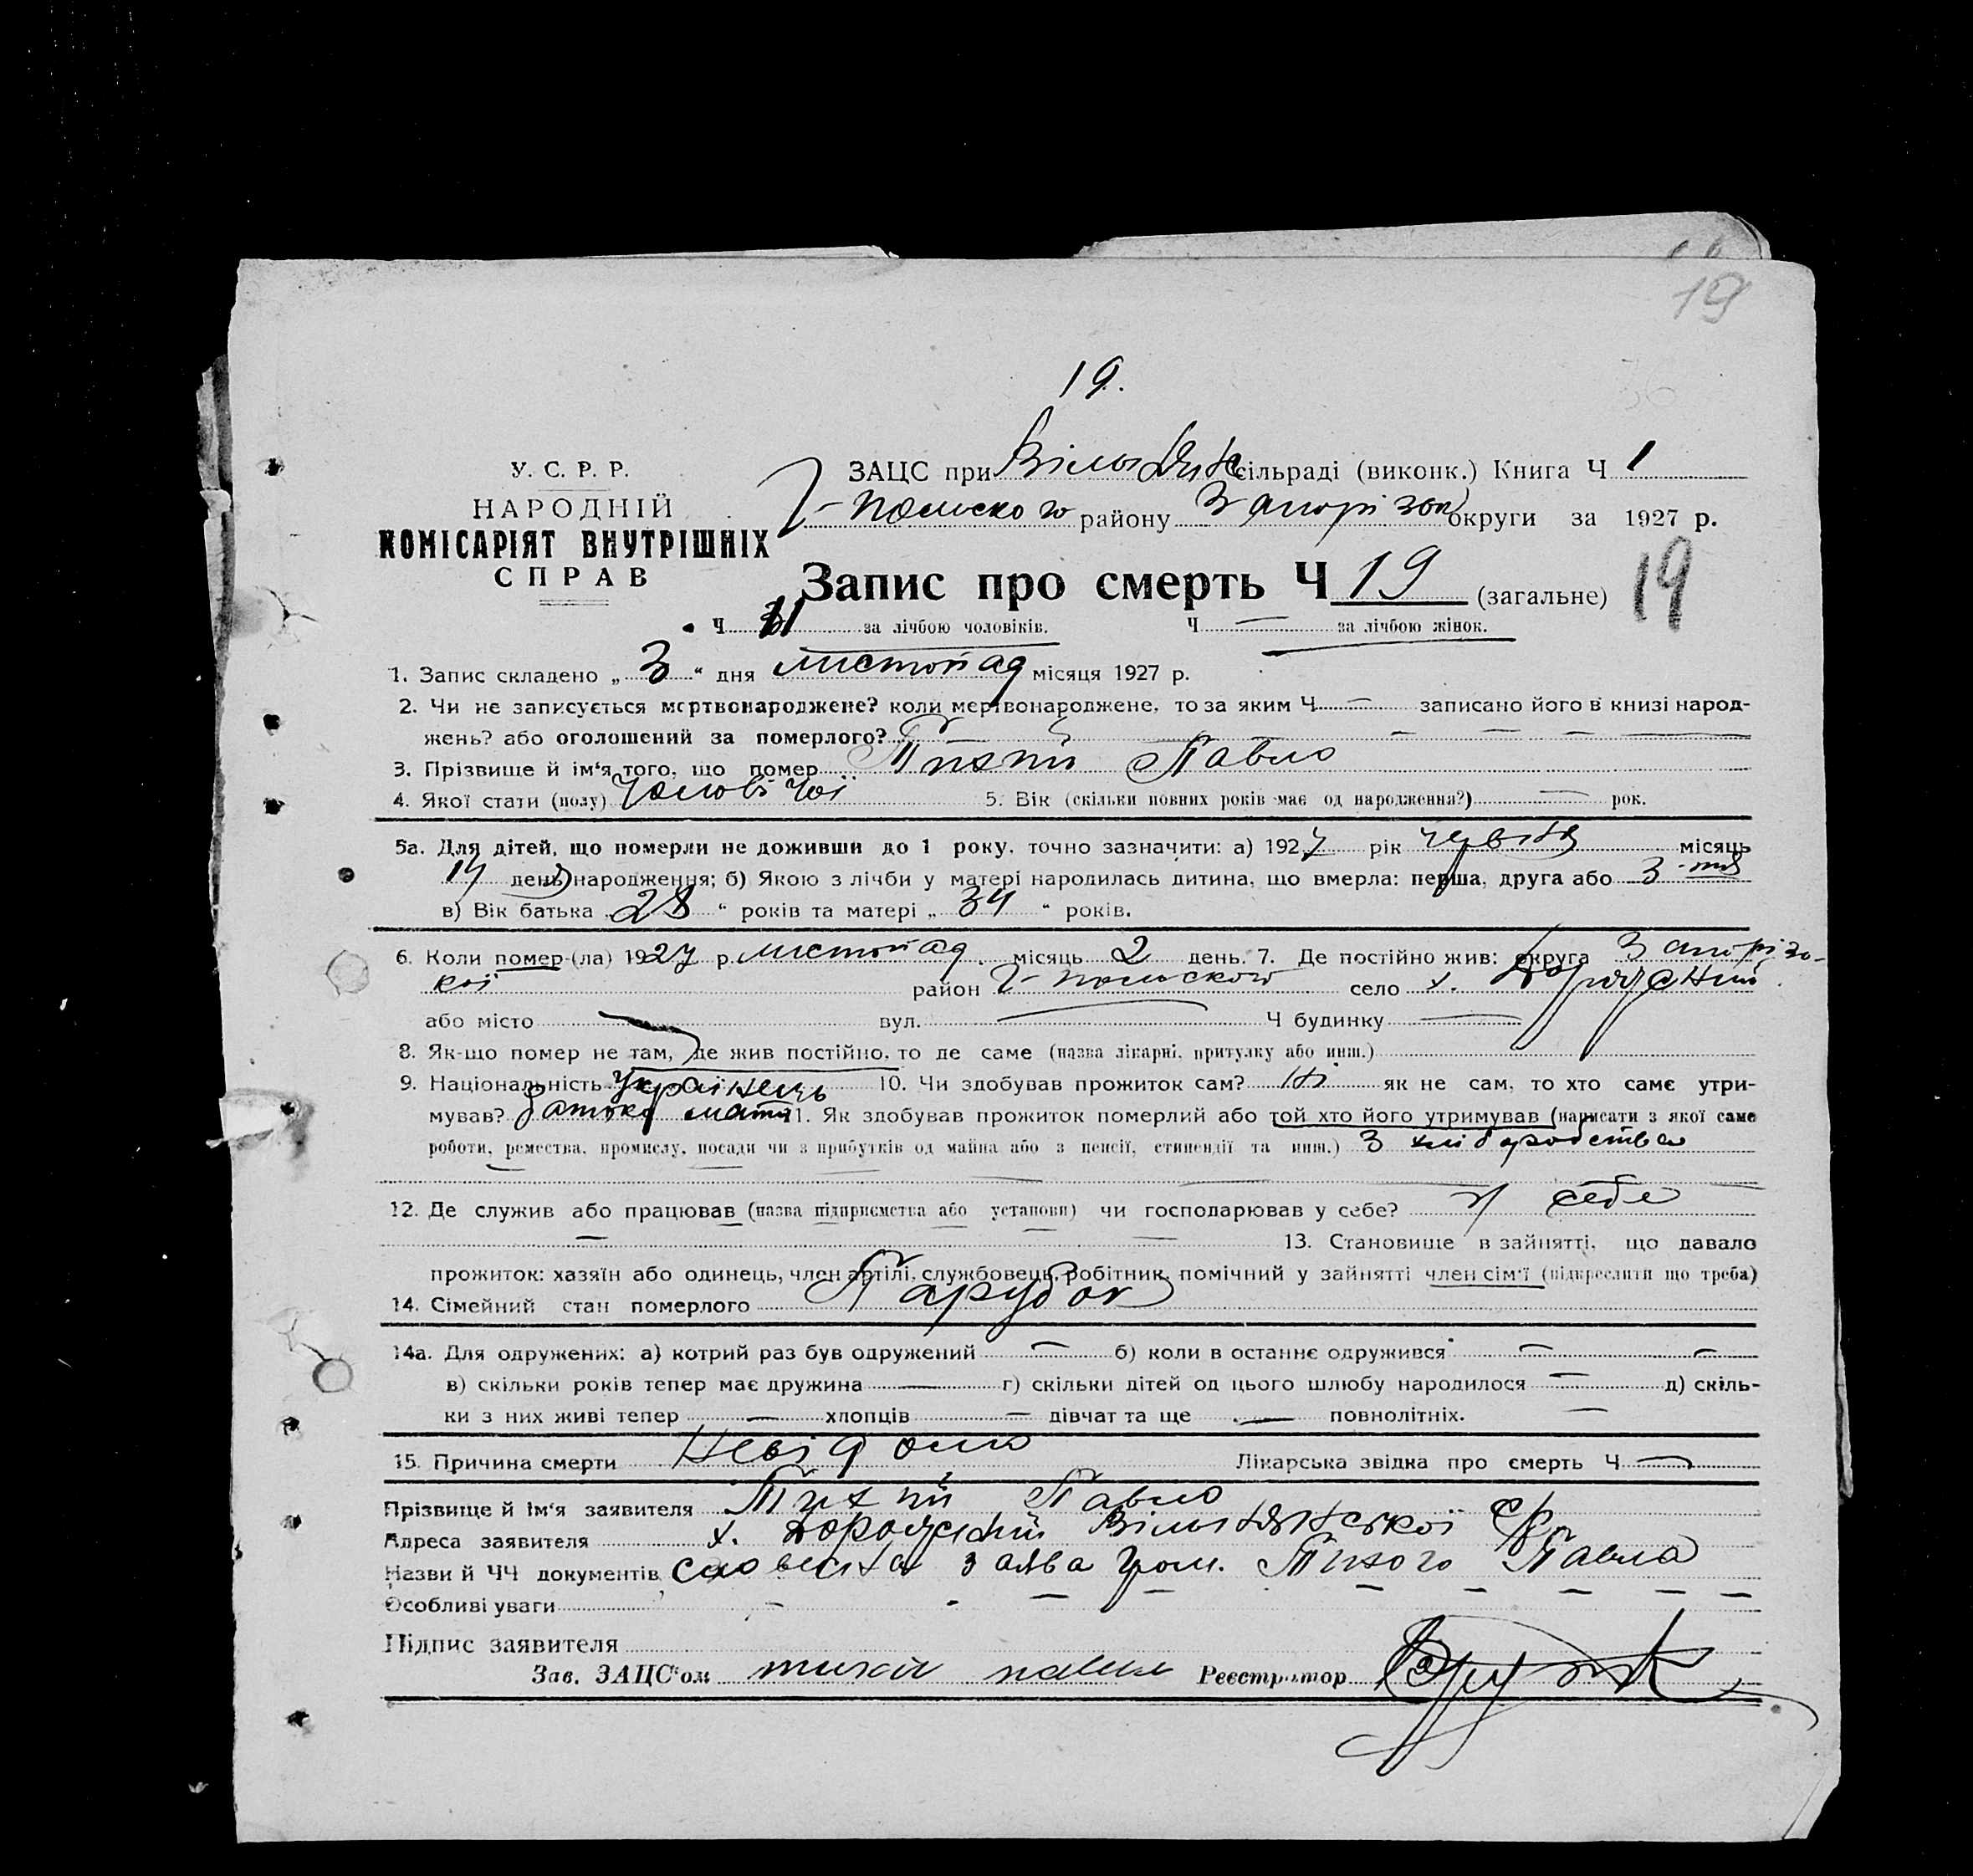 19
19.
У. С. Р. Р.
НАРОДНІЙ
КОМІСАРІЯТ ВНУТРІШНІХ
СПРАВ
ЗАЦС при Вільнян сільраді (виконк.) Книга Ч 1
Г-Польского району Запорізок округи за 1927 р.
Запис про смерть Ч 19 (загальне) 19
Ч 11 за лічбою чоловіків. Ч — за лічбою жінок.
1. Запис складено „ 3 “ дня листопад місяця 1927 р.
2. Чи не записується мертвонароджене? коли мертвонароджене, то за яким Ч — записано його в книзі народ-
жень? або оголошений за померлого? —
3. Прізвище й ім‘я того, що помер Тихий Павло
4. Якої стати (полу) Чоловічої 5. Вік (скільки повних років має од народження?) — рок.
5а. Для дітей, що померли не доживши до 1 року, точно зазначити: а) 1927 рік червня місяць
17 день народження; б) Якою з лічби у матері народилась дитина, що вмерла: перша, друга або 3-тя
в) Вік батька „ 28 “ років та матері „ 34 “ років.
6. Коли помер (ла) 1927 р. листопад. місяць 2 день. 7. Де постійно жив: округа Запорізо-
кої район Г-Польского село х.
або місто — вул. — Ч будинку —
8. Як-що помер не там, де жив постійно, то де саме (назва лікарні, притулку або инш.)
9. Національність Українець 10. Чи здобував прожиток сам? Ні як не сам, то хто саме утри-
мував? Батько мати 11. Як здобував прожиток померлий або той хто його утримував (написати з якої саме
роботи, ремества, промислу, посади чи з прибутків од майна або з пенсії, стипендії та инш.) З хліборобства
12. Де служив або працював (назва підприємства або установи) чи господарював у себе? у себе
— — 13. Становище в зайнятті, що давало
прожиток: хазяїн або одинець, член артілі, службовець, робітник, помічний у зайнятті член сім‘ї (підкреслити що треба)
14. Сімейний стан померлого Парубок
14а. Для одружених: а) котрий раз був одружений — б) коли в останнє одружився — —
в) скільки років тепер має дружина — г) скільки дітей од цього шлюбу народилося — д) скіль-
ки з них живі тепер — хлопців — дівчат та ще — повнолітніх. —
15. Причина смерти Невідомо Лікарська звідка про смерть Ч —
Прізвище й ім‘я заявителя Тихий Павло
Адреса заявителя х. Вільнянської с/р
Назви й ЧЧ документів Словесна заява гром. Тихого Павла
Особливі уваги — — — — — — —
Підпис заявителя
Зав. ЗАЦС‘ом тихий павел Реєстратор